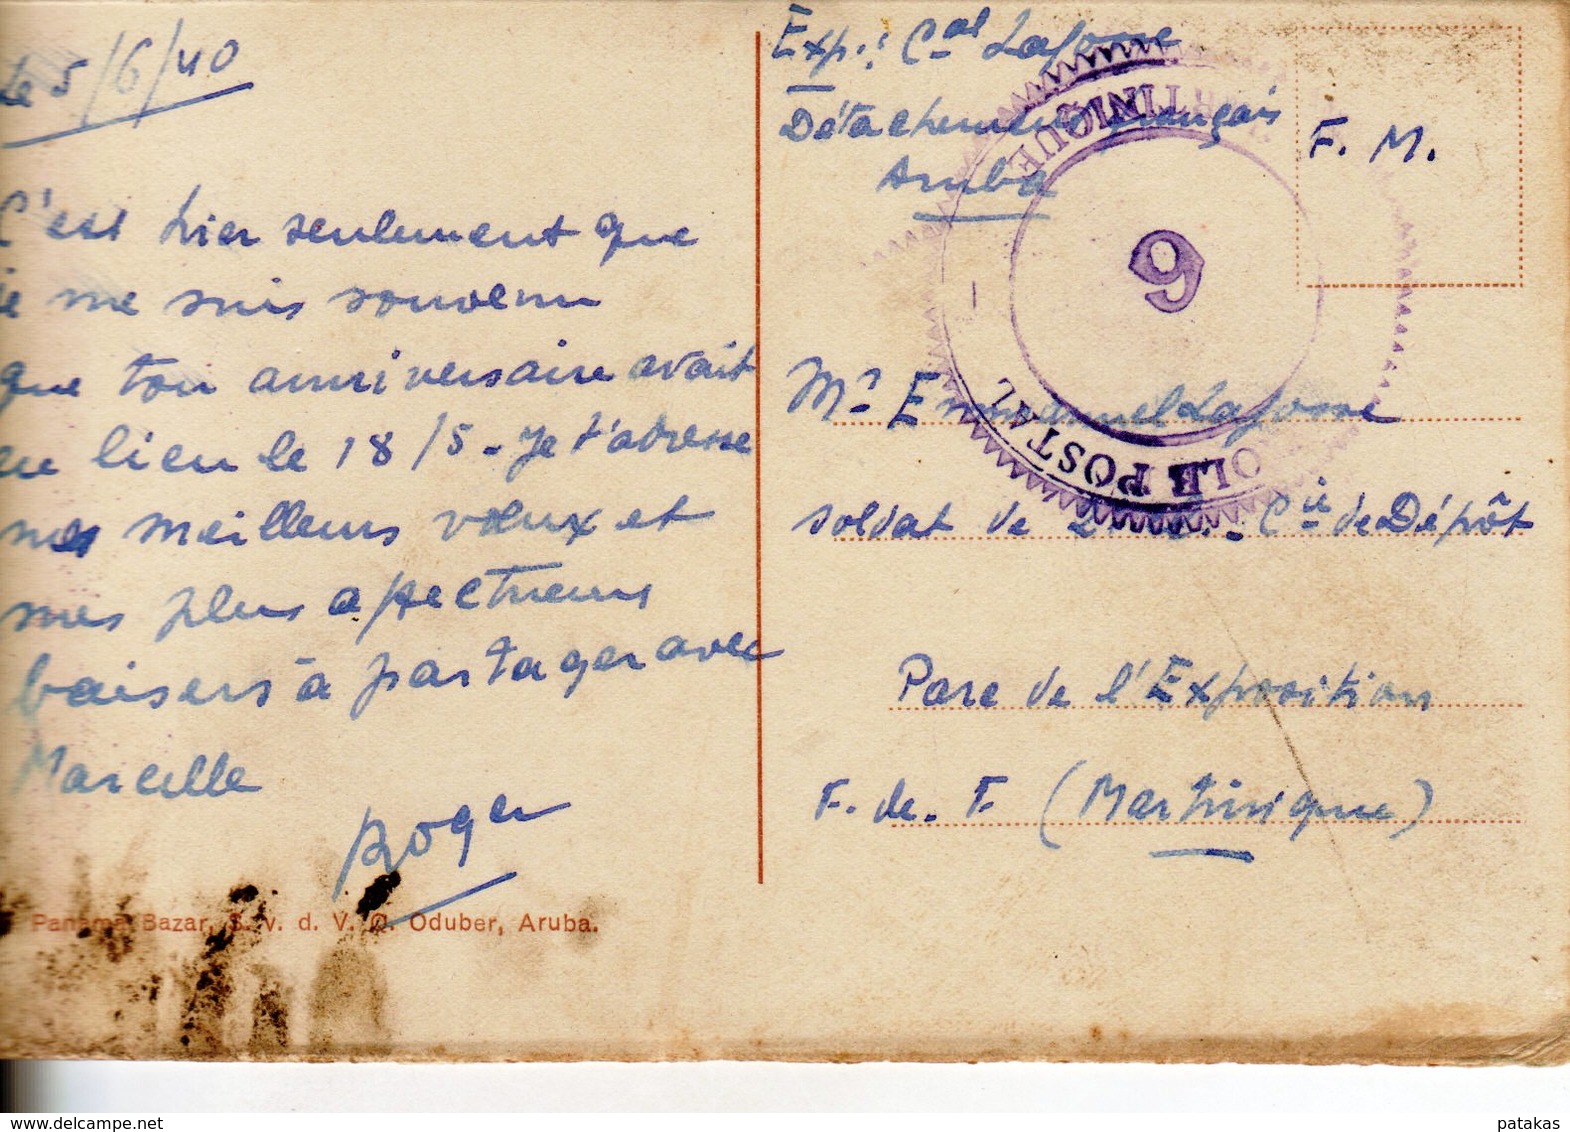 Le 5/6/40
C'est hier seulement que
je me suis souvenu
que ton anniversaire avait
eu lieu le 18/5 - Je t'adresse
mes meilleurs vœux et
mes plus affectueux
baisers à partager avec
Marcelle
Roger
Panama Bazar, S. v. d. V. C. Oduber, Aruba.
Exp.: Cal Lafosse
Détachement français
Aruba
F. M.
MARTINIQUE
9
OLE POSTAL
Mr Emmanuel Lafosse
soldat de 2 - Cie de Dépôt
Parc de l'Exposition
F. de. F. (Martinique)
patakas